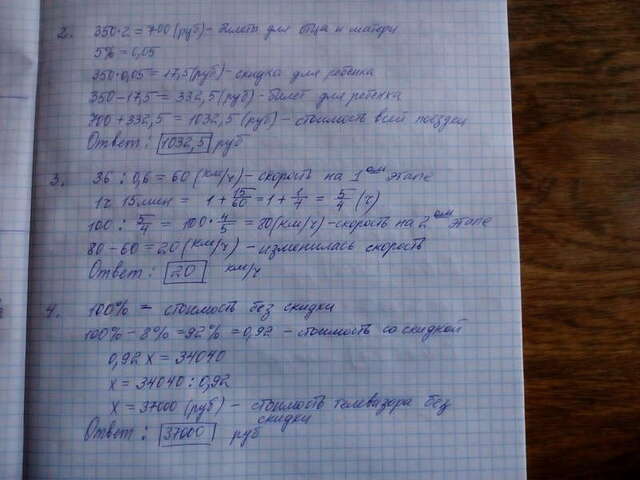 2. 350·2=700 (руб) - билеты для отца и матери
5% = 0,05
350·0,05 = 17,5 (руб) - скидка для ребенка
350-17,5 = 332,5 (руб) - билет для ребенка
700+332,5 = 1032,5 (руб) - стоимость всей поездки
Ответ: 1032,5 руб
3. 36 : 0,6 = 60 (км/ч) - скорость на 1 ом этапе
1ч 15мин = 1 + 15/60 = 1 + 1/4 = 5/4 (ч)
100 : 5/4 = 100 · 4/5 = 80 (км/ч) - скорость на 2 ом этапе
80 - 60 = 20 (км/ч) - изменилась скорость
Ответ: 20 км/ч
4. 100% - стоимость без скидки
100% - 8% = 92% = 0,92 - стоимость со скидкой
0,92 x = 34040
x = 34040 : 0,92
x = 37000 (руб) - стоимость телевизора без
скидки
Ответ: 37000 руб